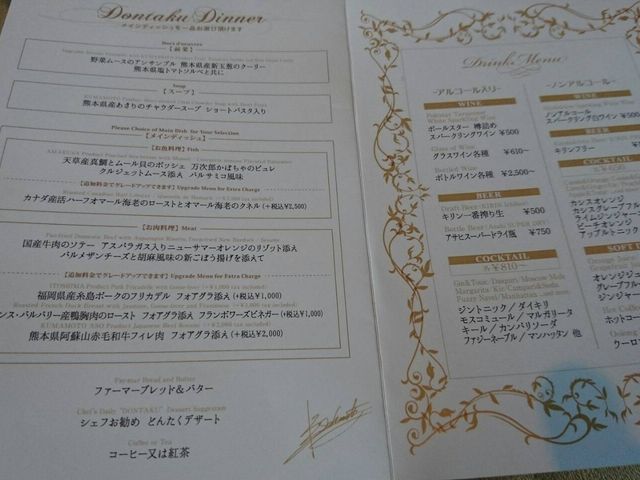 Dontaku Dinner
メインディッシュを一品お選び頂けます
Hors d'oeuvres
【前菜】
野菜ムースのアンサンブル 熊本県産新玉葱のクーリー
熊本県塩トマトソルベと共に
Soup
【スープ】
熊本県産あさりのチャウダースープ ショートパスタ入り
Please Choice of Main Dish for Your Selection
【メインディッシュ】
【お魚料理】Fish
天草産真鯛とムール貝のポッシェ 万次郎かぼちゃのピュレ
クルジェットムース添え バルサミコ風味
【追加料金でグレードアップできます】Upgrade Menu for Extra Charge
カナダ産活ハーフオマール海老のローストとオマール海老のクネル (+税込¥2,500)
【お肉料理】Meat
国産牛肉のソテー アスパラガス入りニューサマーオレンジのリゾット添え
パルメザンチーズと胡麻風味の新ごぼう揚げを添えて
【追加料金でグレードアップできます】Upgrade Menu for Extra Charge
福岡県産糸島ポークのフリカデル フォアグラ添え (+税込¥1,000)
ンス・バルバリー産鴨胸肉のロースト フォアグラ添え フランボワーズビネガー (+税込¥1,000)
KUMAMOTO ASO Product Japanese Beef
熊本県阿蘇山赤毛和牛フィレ肉 フォアグラ添え (+税込¥2,000)
Farmer Bread and Butter
ファーマーブレッド&バター
Chef's Daily "DONTAKU" Dessert Suggestion
シェフお勧め どんたくデザート
Coffee or Tea
コーヒー又は紅茶
Drink Menu
~アルコール入り~
WINE
White Sparkling Wine
ポールスター 樽詰め
スパークリングワイン ¥500
Glass of Wine
グラスワイン各種 ¥610~
Bottled Wine
ボトルワイン各種 ¥2,500~
BEER
Draft Beer (KIRIN Ichiban)
キリン一番搾り生 ¥500
Bottled Beer (Asahi SUPER DRY)
アサヒスーパードライ瓶 ¥750
COCKTAIL
各¥810~
Gin&Tonic/ Daiquiri/ Moscow Mule
Margarita/ Kir/ Campari&soda
Fuzzy Navel/ Manhattan
ジントニック / ダイキリ
モスコミュール / マルガリータ
キール / カンパリソーダ
ファジーネーブル / マンハッタン 他
~ノンアルコール~
WINE
ノンアルコール
スパークリング白ワイン ¥
BEER
キリンフリー
COCKTAIL
カシスオレンジ
ライムジンジャ
ピーチオレンジ
アップルトニック
SOFT
オレンジジュ
ジンジャー
Hot Coffee
ホットコー
Oolong
ウーロン